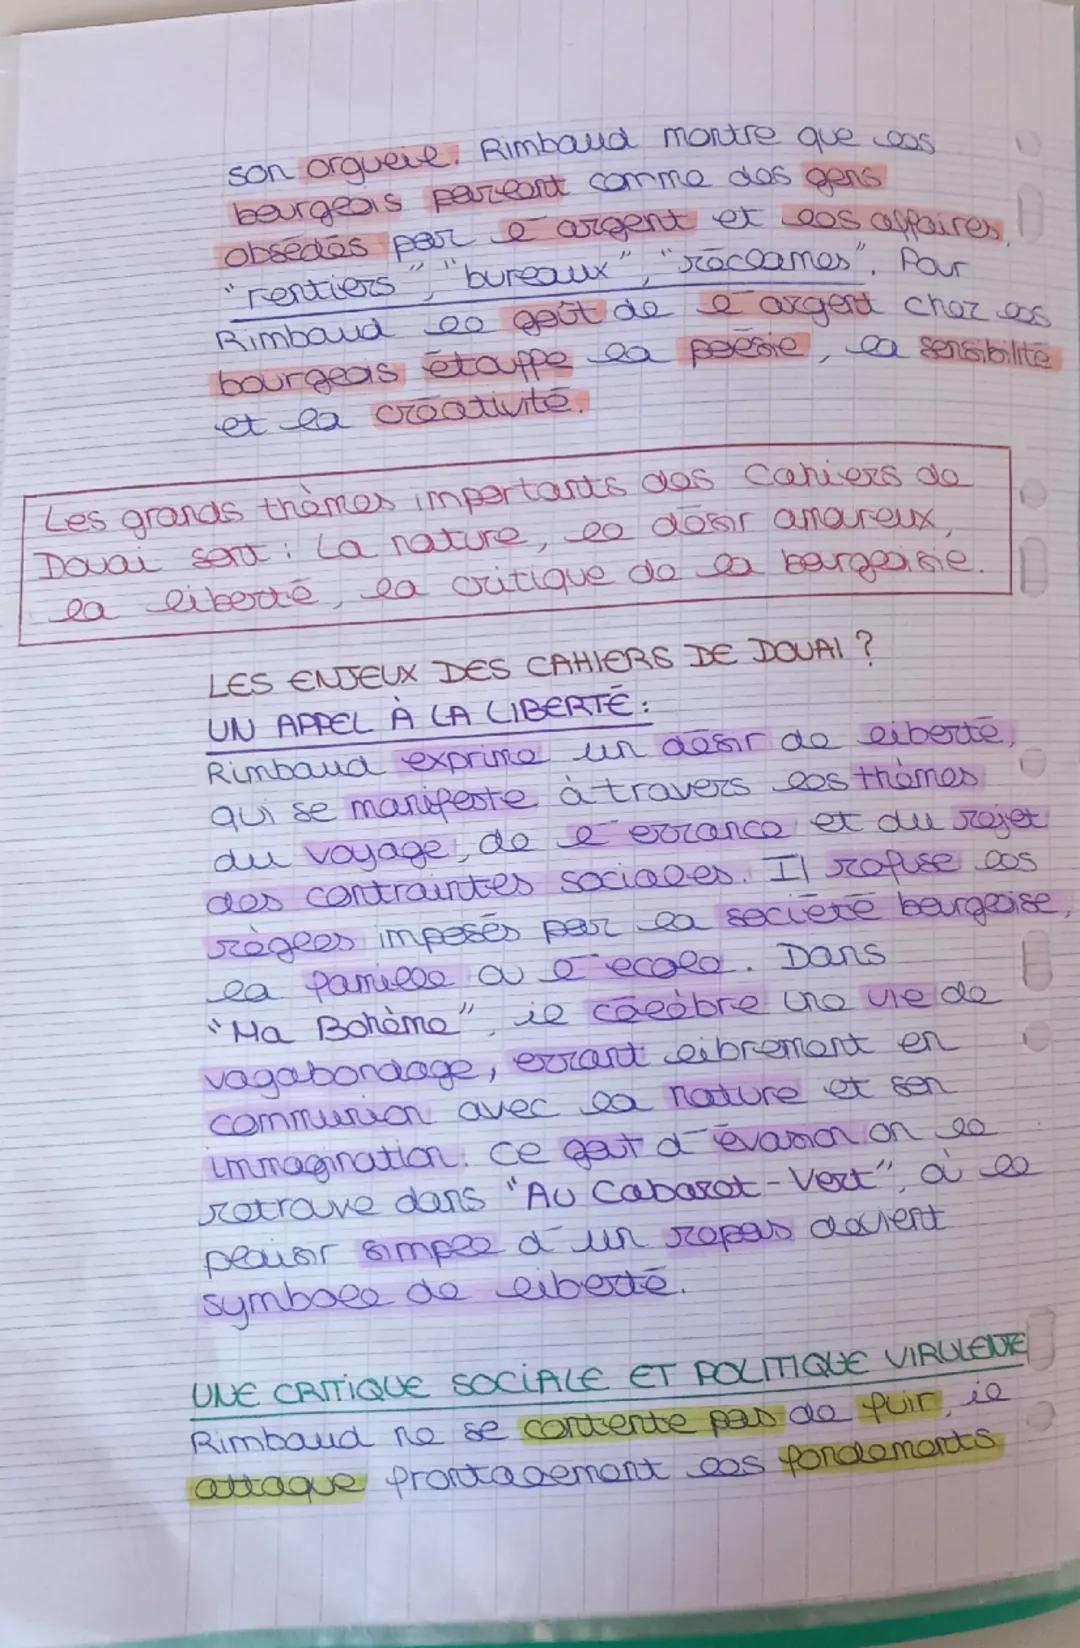 son orgueil. Rimbaud montre que les
bourgeois parlent comme des gens
obsédés par l'argent et les affaires,
"rentiers", "bureaux", "réclames". Pour
Rimbaud le goût de l'argent chez les
bourgeois étouffe la poésie, la sensibilité
et la créativité.
Les grands thèmes importants des Cahiers de
Douai sont : La nature, le désir amoureux,
la liberté, la critique de la bourgeoisie.
LES ENJEUX DES CAHIERS DE DOUAI ?
UN APPEL À LA LIBERTÉ :
Rimbaud exprime un désir de liberté,
qui se manifeste à travers les thèmes
du voyage, de l'errance et du rejet
des contraintes sociales. Il refuse les
règles imposés par la société bourgeoise,
la famille ou l'école. Dans
"Ma Bohème", il célèbre une vie de
vagabondage, errant librement en
communion avec la nature et son
immagination. Ce goût d'évasion on le
retrouve dans "Au Cabaret-Vert", où le
plaisir simple d'un repas devient
symbole de liberté.
UNE CRITIQUE SOCIALE ET POLITIQUE VIRULENTE
Rimbaud ne se contente pas de fuir, il
attaque frontalement les fondements